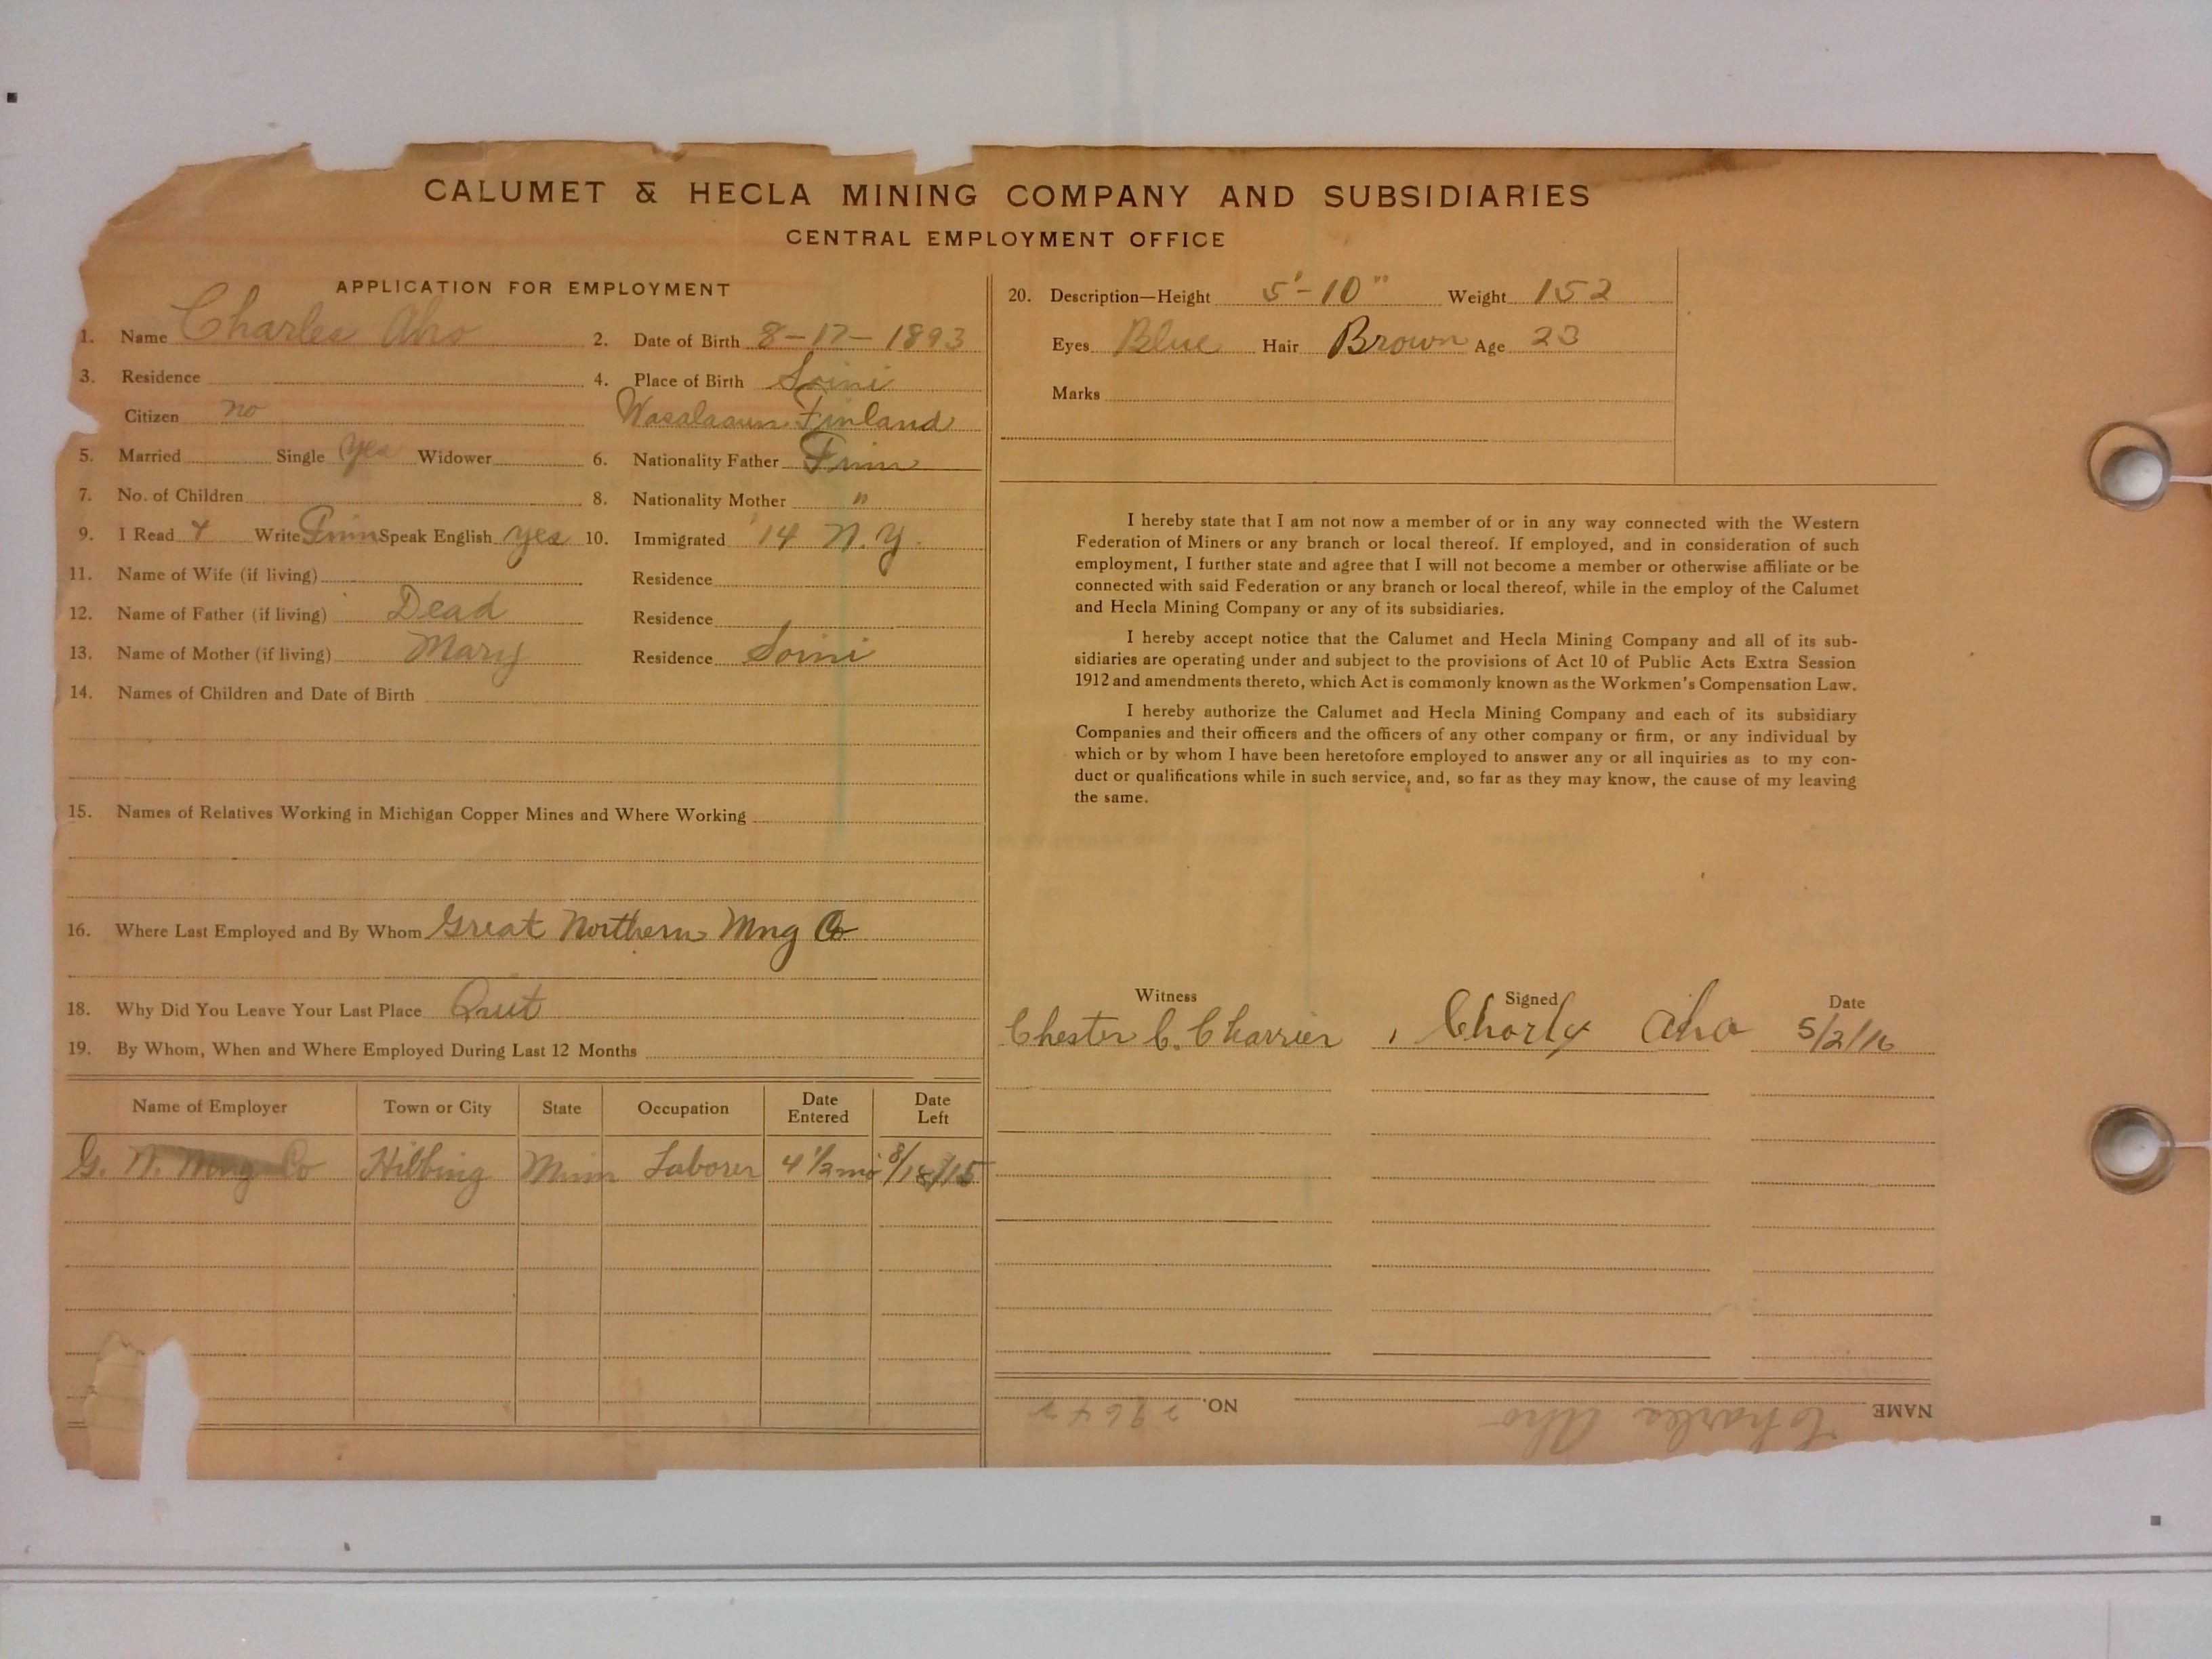 CALUMET & HECLA MINING COMPANY AND SUBSIDIARIES
CENTRAL EMPLOYMENT OFFICE
APPLICATION FOR EMPLOYMENT
1. Name Charles Aho 2. Date of Birth 8-17-1893
3. Residence 4. Place of Birth Soini
Citizen no Finland
5. Married Single Yes Widower 6. Nationality Father Finn
7. No. of Children 8. Nationality Mother "
9. I Read & Write Finn Speak English yes 10. Immigrated '14 N.Y.
11. Name of Wife (if living) Residence
12. Name of Father (if living) Dead Residence
13. Name of Mother (if living) Mary Residence Soini
14. Names of Children and Date of Birth
15. Names of Relatives Working in Michigan Copper Mines and Where Working
16. Where Last Employed and By Whom Great Northern Mng Co
18. Why Did You Leave Your Last Place Quit
19. By Whom, When and Where Employed During Last 12 Months
Name of Employer Town or City State Occupation Date Entered Date Left
G. N. Mng Co Hibbing Minn Laborer 4 1/2 mo 8/18/15
20. Description—Height 5'-10" Weight 152
Eyes Blue Hair Brown Age 23
Marks
I hereby state that I am not now a member of or in any way connected with the Western
Federation of Miners or any branch or local thereof. If employed, and in consideration of such
employment, I further state and agree that I will not become a member or otherwise affiliate or be
connected with said Federation or any branch or local thereof, while in the employ of the Calumet
and Hecla Mining Company or any of its subsidiaries.
I hereby accept notice that the Calumet and Hecla Mining Company and all of its sub-
sidiaries are operating under and subject to the provisions of Act 10 of Public Acts Extra Session
1912 and amendments thereto, which Act is commonly known as the Workmen's Compensation Law.
I hereby authorize the Calumet and Hecla Mining Company and each of its subsidiary
Companies and their officers and the officers of any other company or firm, or any individual by
which or by whom I have been heretofore employed to answer any or all inquiries as to my con-
duct or qualifications while in such service, and, so far as they may know, the cause of my leaving
the same.
Witness Signed Date
Chester C. Charrier, Charly Aho 5/2/16
NAME Charles Aho NO.